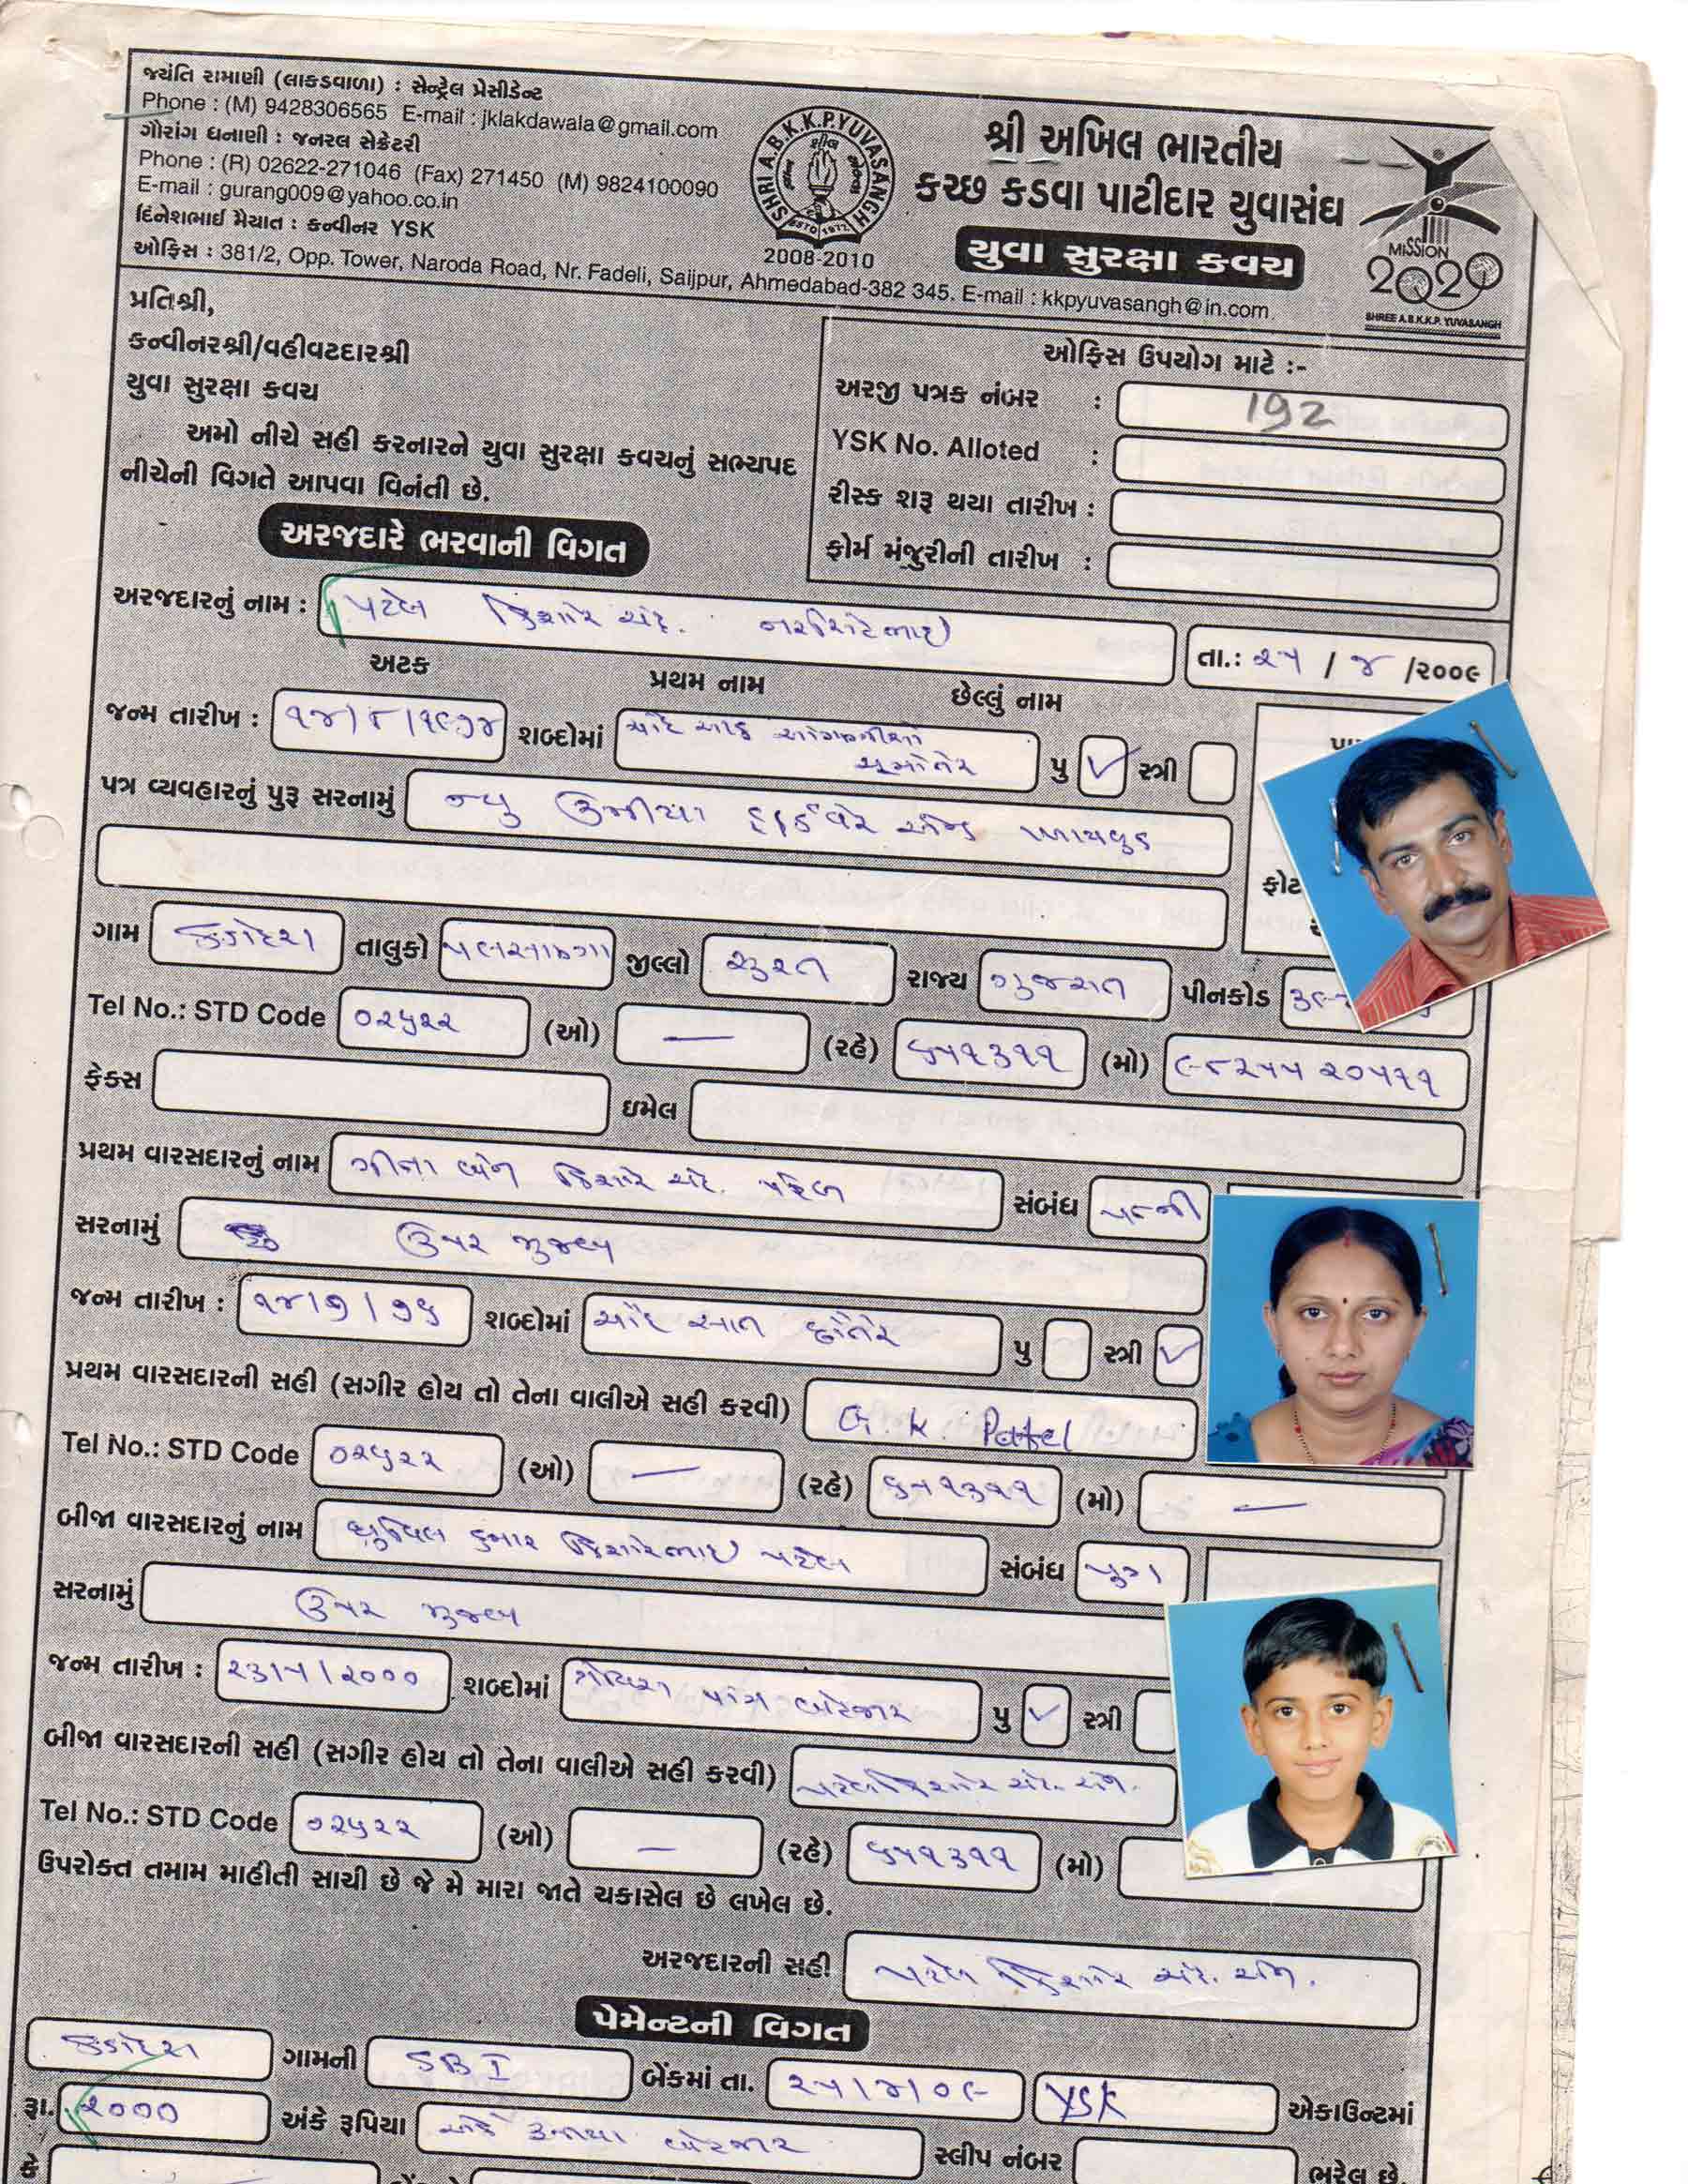 જયંતિ રામાણી (લાકડાવાળા) : સેન્ટ્રેલ પ્રેસીડેન્ટ
Phone : (M) 9428306565 E-mail : jklakdawala@gmail.com
ગૌરાંગ ધનાણી : જનરલ સેક્રેટરી
Phone : (R) 02622-271046 (Fax) 271450 (M) 9824100090
E-mail : gurang009@yahoo.co.in
દિનેશભાઈ મૈયાત : કન્વીનર YSK
ઓફિસ : 381/2, Opp. Tower, Naroda Road, Nr. Fadeli, Saijpur, Ahmedabad-382 345. E-mail : kkpyuvasangh@in.com
SHRI A.B.K.K.P.YUVASANGH
ESTD 1977
2008-2010
શ્રી અખિલ ભારતીય
કચ્છ કડવા પાટીદાર યુવાસંઘ
યુવા સુરક્ષા કવચ
MiSSiON
2020
SHREE A.B.K.K.P. YUVASANGH
પ્રતિશ્રી,
કન્વીનરશ્રી/વહીવટદારશ્રી
યુવા સુરક્ષા કવચ
અમો નીચે સહી કરનારને યુવા સુરક્ષા કવચનું સભ્યપદ
નીચેની વિગતે આપવા વિનંતી છે.
ઓફિસ ઉપયોગ માટે :-
અરજી પત્રક નંબર : 192
YSK No. Alloted :
રીસ્ક શરૂ થયા તારીખ :
ફોર્મ મંજુરીની તારીખ :
અરજદારે ભરવાની વિગત
અરજદારનું નામ : પટેલ કિશોર ચંદ્ર. તા.: ૨૫ / ૪ /૨૦૦૯
અટક પ્રથમ નામ છેલ્લું નામ
જન્મ તારીખ : ૧૪/૮/૧૯૭૪ શબ્દોમાં ચૌદ આઠ ઓગણીસો ચૂમોતેર પુ ✓ સ્ત્રી
પત્ર વ્યવહારનું પુરૂ સરનામું ન્યુ ઉમીયા હાર્ડવેર એન્ડ પ્લાયવુડ
ફોટ
ગામ કડોદરા તાલુકો પલસાણા જીલ્લો સુરત રાજ્ય ગુજરાત પીનકોડ
Tel No.: STD Code ૦૨૬૨૨ (ઓ) — (રહે) ૬૫૧૩૧૧ (મો) ૯૮૨૫૫ ૨૦૫૧૧
ફેક્સ ઇમેલ
પ્રથમ વારસદારનું નામ ગીતા બેન કિશોર ચંદ્ર. પટેલ સંબંધ પત્ની
સરનામું ઉપર મુજબ
જન્મ તારીખ : ૧૪/૭/૭૬ શબ્દોમાં ચૌદ સાત છોતેર પુ સ્ત્રી ✓
પ્રથમ વારસદારની સહી (સગીર હોય તો તેના વાલીએ સહી કરવી) G. K. Patel
Tel No.: STD Code ૦૨૬૨૨ (ઓ) — (રહે) ૬૫૧૩૧૧ (મો) —
બીજા વારસદારનું નામ કુમાર કિશોરભાઇ પટેલ સંબંધ પુત્ર
સરનામું ઉપર મુજબ
જન્મ તારીખ : ૨૩/૫/૨૦૦૦ શબ્દોમાં ત્રેવિસ પાંચ બેહજાર પુ ✓ સ્ત્રી
બીજા વારસદારની સહી (સગીર હોય તો તેના વાલીએ સહી કરવી) પટેલ કિશોર ચંદ્ર. એન.
Tel No.: STD Code ૦૨૬૨૨ (ઓ) — (રહે) ૬૫૧૩૧૧ (મો)
ઉપરોક્ત તમામ માહીતી સાચી છે જે મે મારા જાતે ચકાસેલ છે લખેલ છે.
અરજદારની સહી પટેલ કિશોર ચંદ્ર. એન.
પેમેન્ટની વિગત
કડોદરા ગામની SBI બેંકમાં તા. ૨૫/૪/૦૯ YSK એકાઉન્ટમાં
રૂા. ૨૦૦૦ અંકે રૂપિયા અંકે રૂપીયા બેહજાર સ્લીપ નંબર
ભરેલ છે.